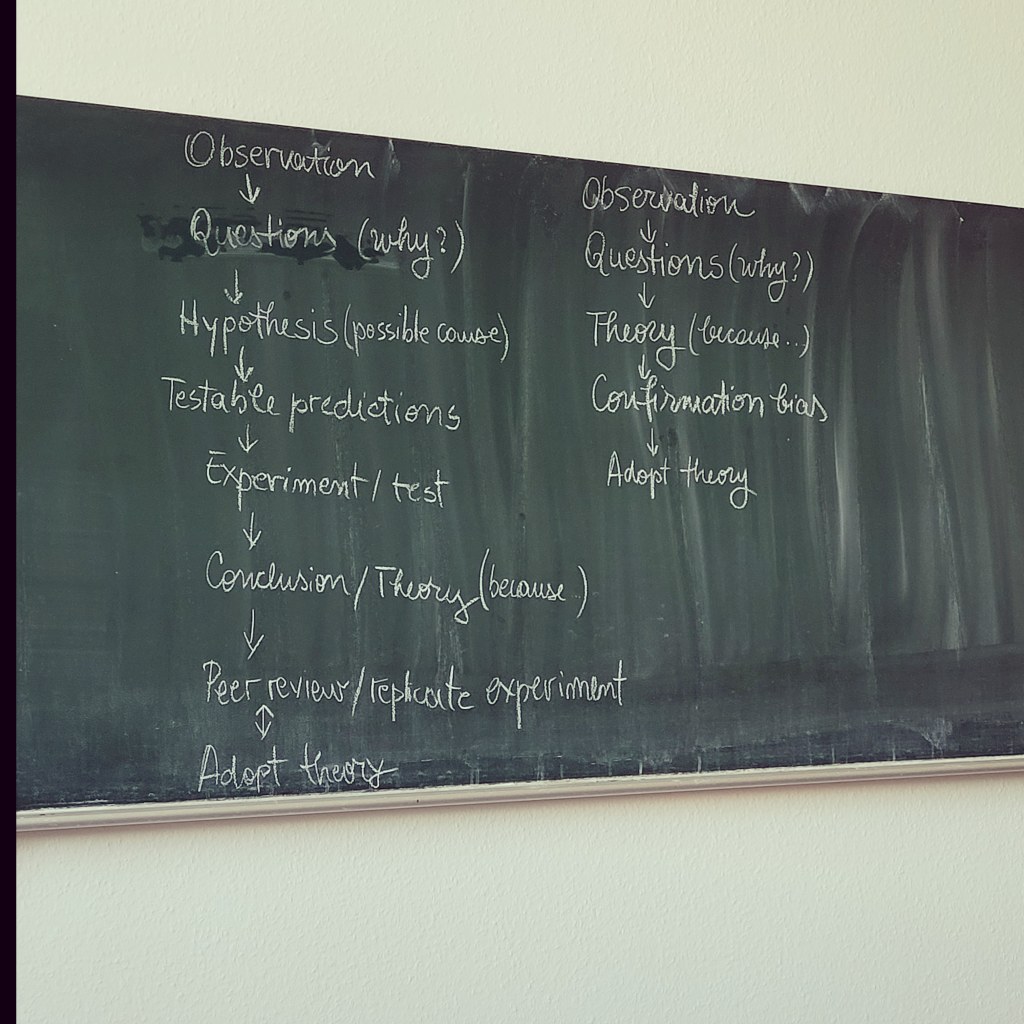 Observation
↓
Questions (why?)
↓
Hypothesis (possible cause)
↓
Testable predictions
↓
Experiment / test
↓
Conclusion / Theory (because )
↓
Peer review / replicate experiment
↕
Adopt theory
Observation
↓
Questions (why?)
↓
Theory (because..)
↓
Confirmation bias
↓
Adopt theory